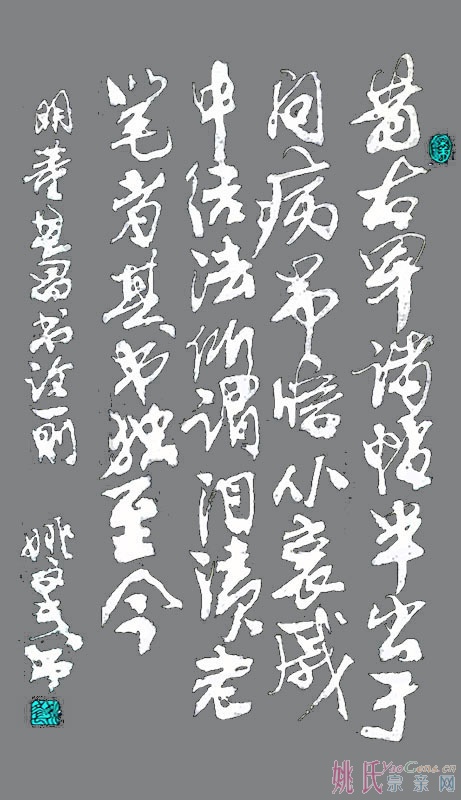 昔右军诸帖半出于
问病吊唁从哀戚
中结法所谓泪渍老
笔者其书独至今
明董其昌书论一则
姚 书
姚氏宗亲网